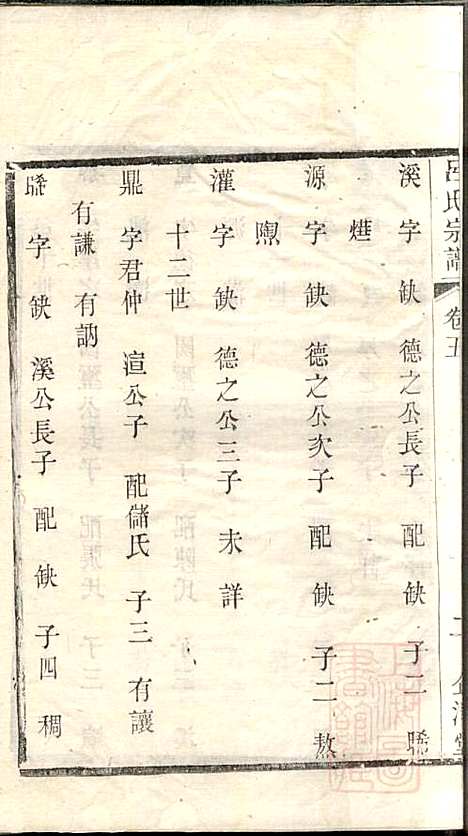 呂氏宗譜 卷五
溪字缺 德之公長子 配缺 子二
源字缺 德之公次子 配缺 子二 熬
灌字缺 德之公三子 未詳
十二世
鼎字君仲 渲公子 配儲氏 子三 有讓
有謙 有訥
字缺 溪公長子 配缺 子四 稠